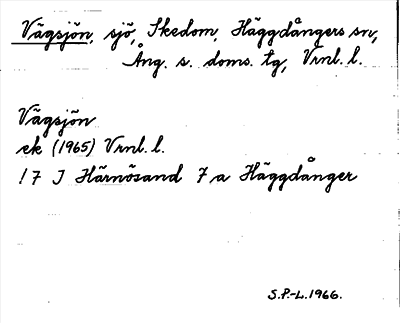 Vägsjön, sjö, Skedom, Häggdångers sn,
Ång. s. doms. tg, Vrnl. l.
Vägsjön
ek (1965) Vrnl. l.
!7 J Härnösand 7 a Häggdånger
S.P.-L. 1966.